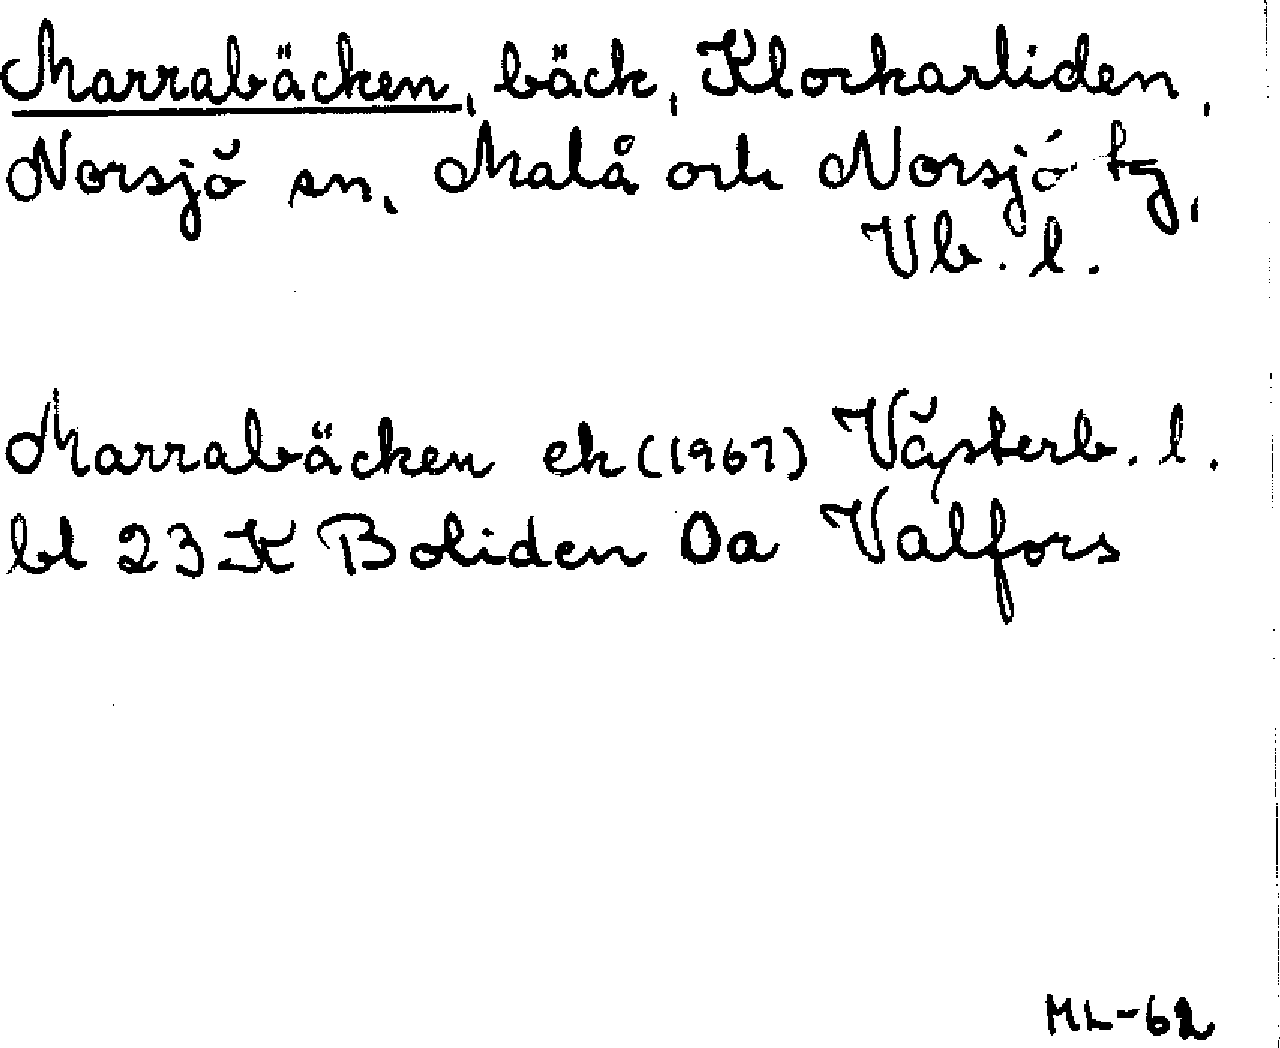 Marrabäcken, bäck, Klockarliden,
Norsjö sn, Malå och Norsjö tg,
Vb. l.
Marrabäcken ek (1961) Västerb. l.
bl 23 K Boliden Oa Valfors
ML-62